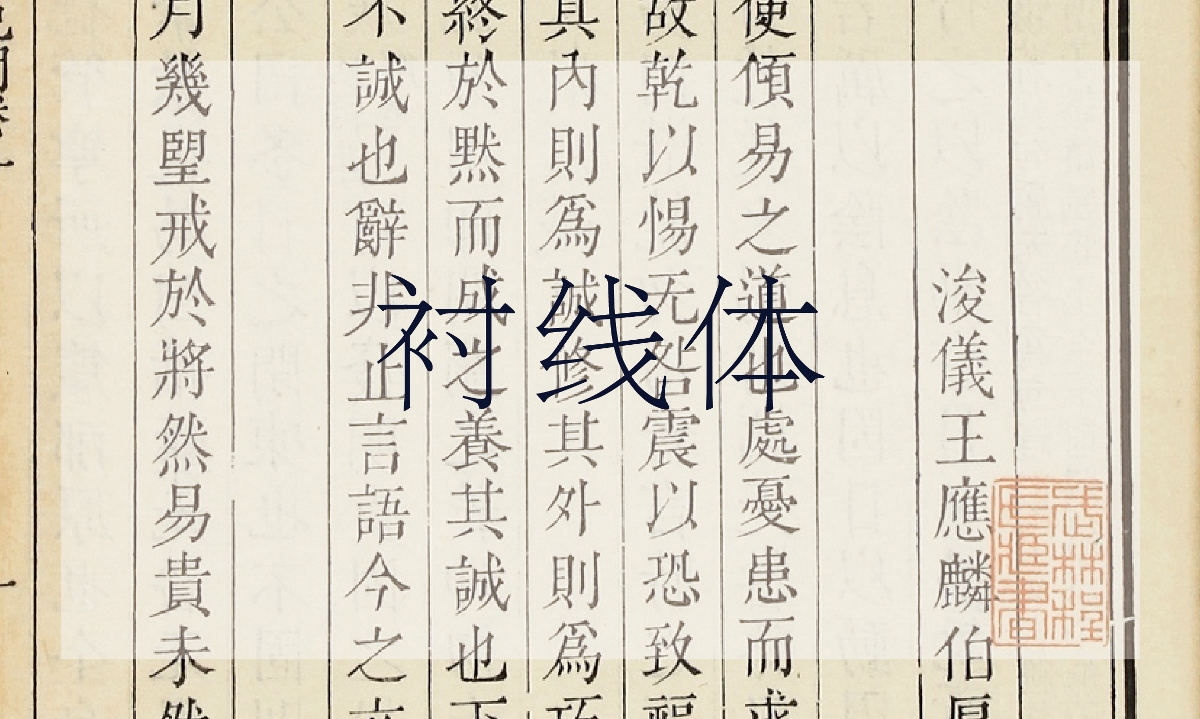 衬线体
浚儀王應麟伯厚
使傾易之道也處憂患而求
故乾以惕无咎震以恐致福
其內則爲誠修其外則爲巧
終於黙而成之養其誠也下
不誠也辭非止言語今之文
月幾望戒於將然易貴未然